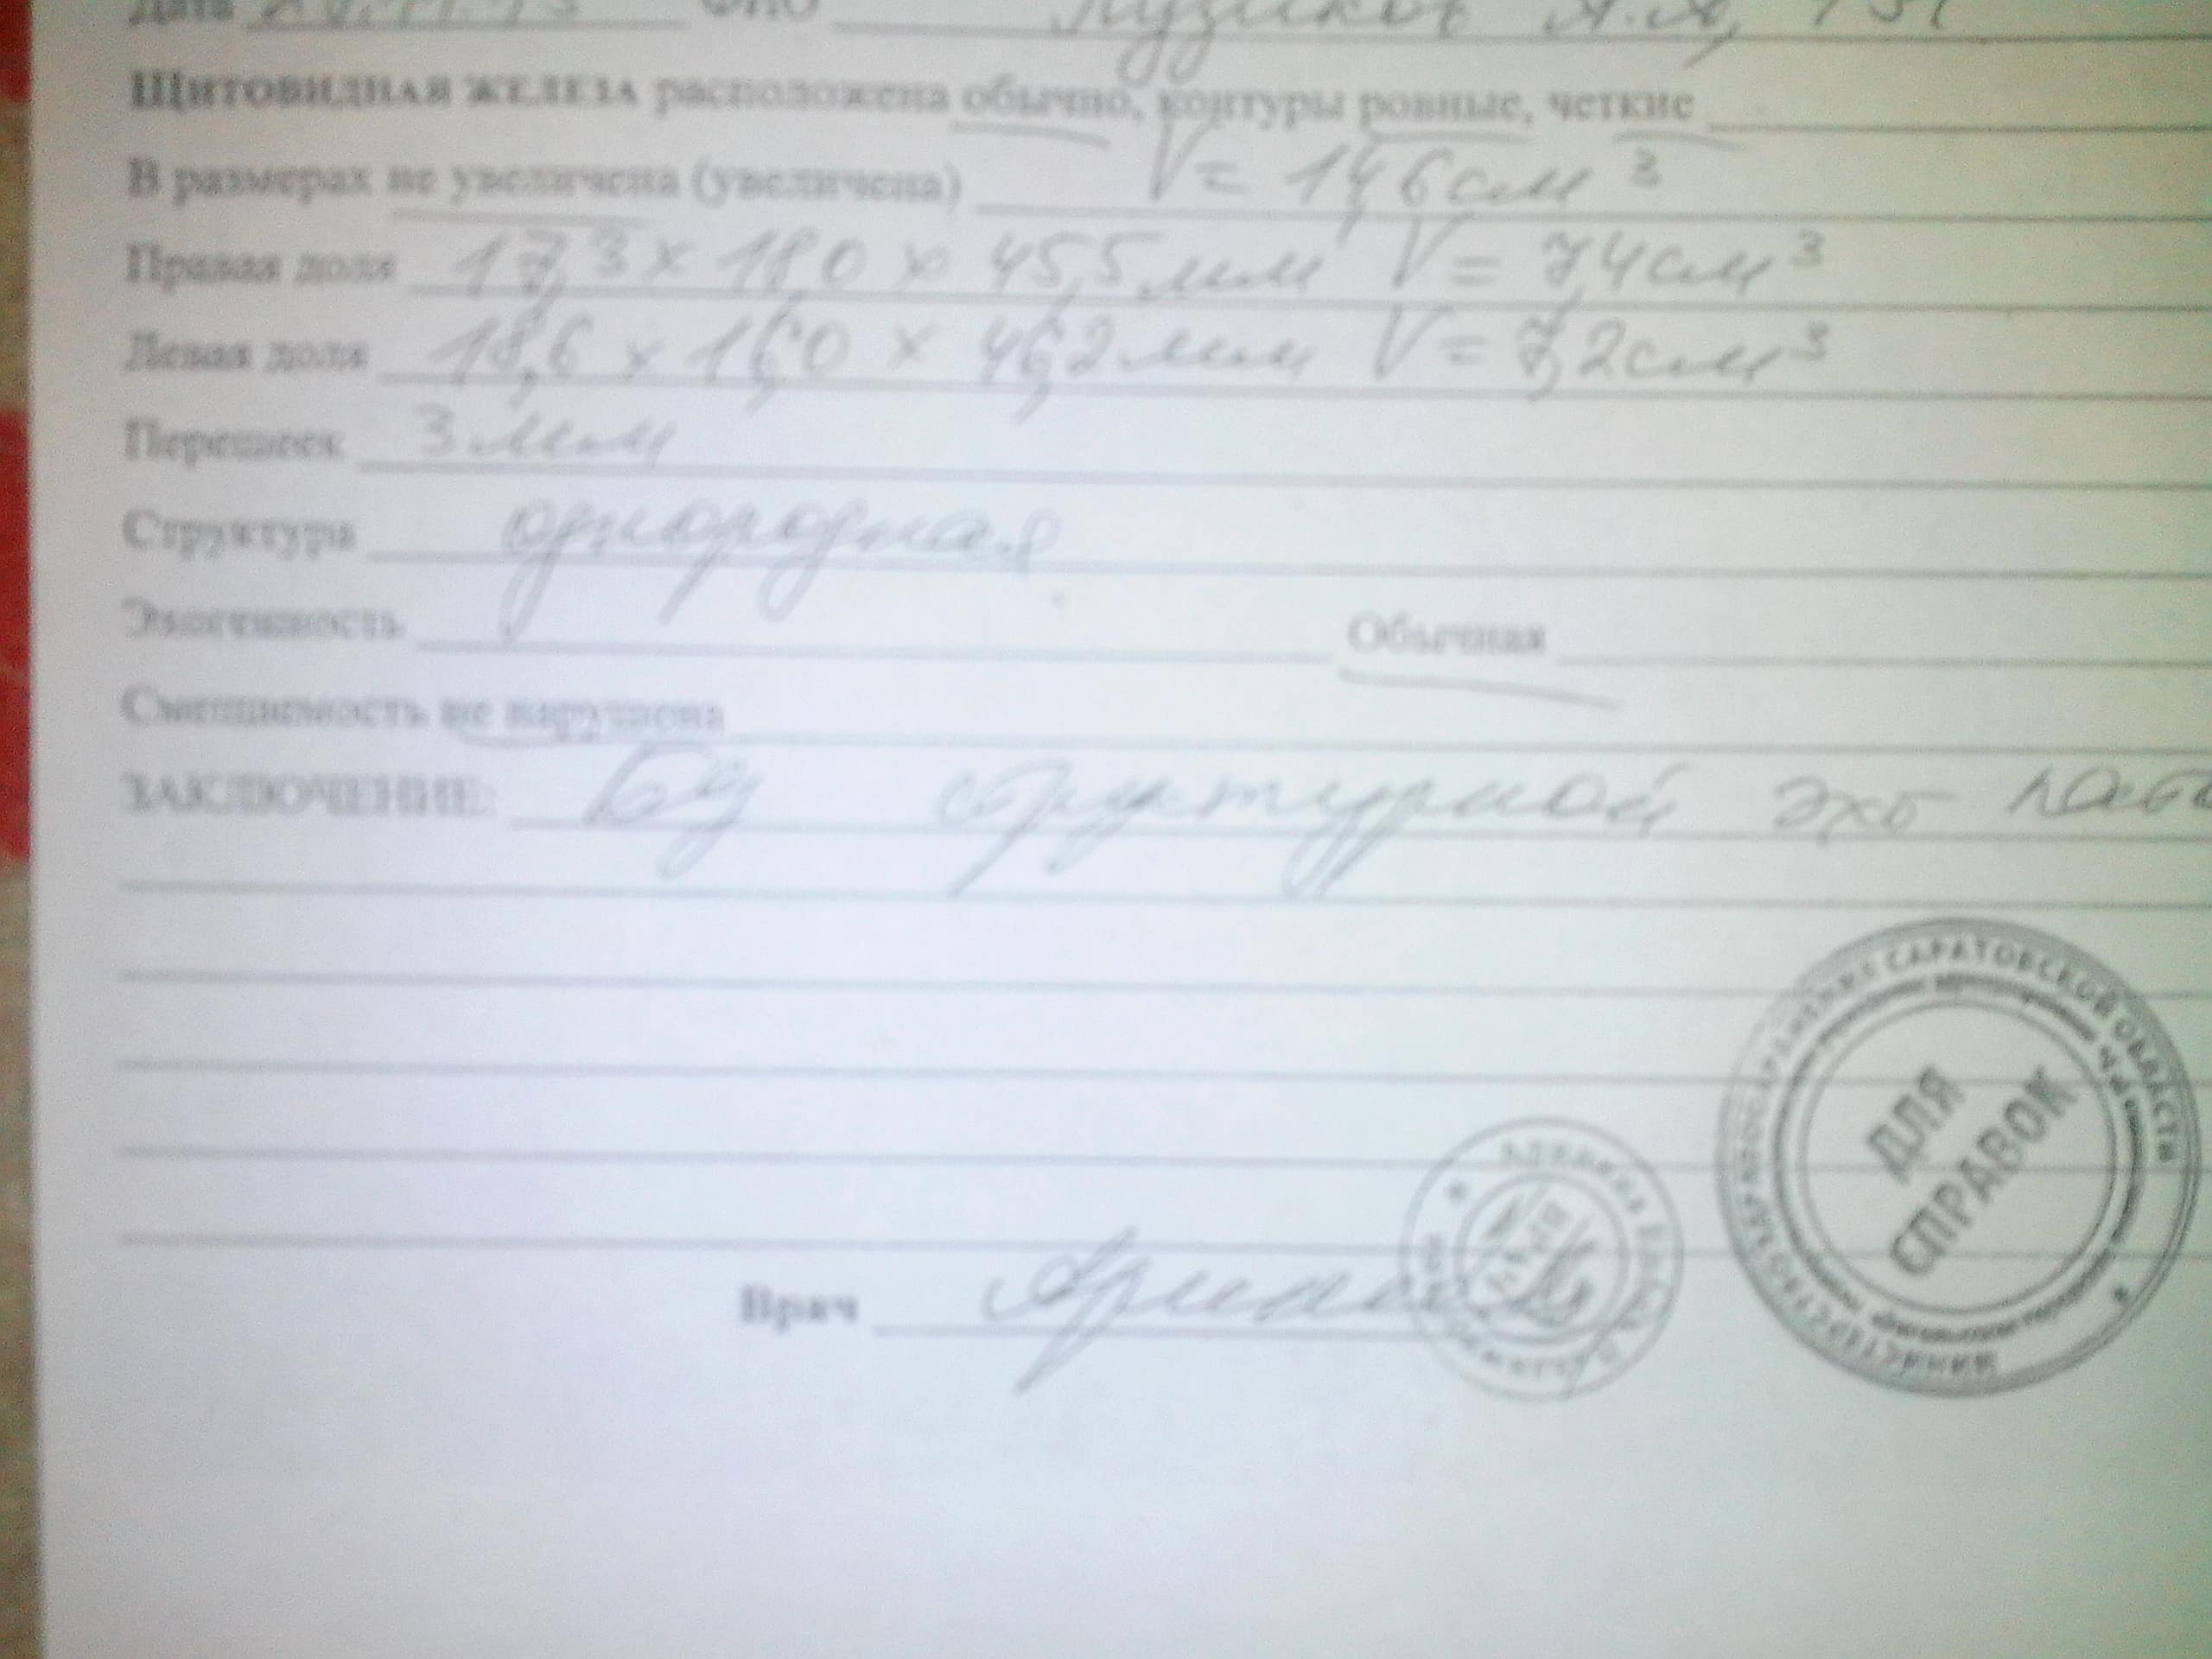 Дата ФИО
ЩИТОВИДНАЯ ЖЕЛЕЗА расположена обычно, контуры ровные, четкие
В размерах не увеличена (увеличена) V = 14,6 см³
Правая доля 17,3 х 18,0 х 45,5 мм V = 7,4 см³
Левая доля 18,6 х 16,0 х 46,2 мм V = 7,2 см³
Перешеек 3 мм
Структура однородная
Эхогенность Обычная
Смещаемость не нарушена
ЗАКЛЮЧЕНИЕ: Без структурной эхо
МИНИСТЕРСТВО ЗДРАВООХРАНЕНИЯ САРАТОВСКОЙ ОБЛАСТИ
ДЛЯ
СПРАВОК
ВРАЧ
Врач